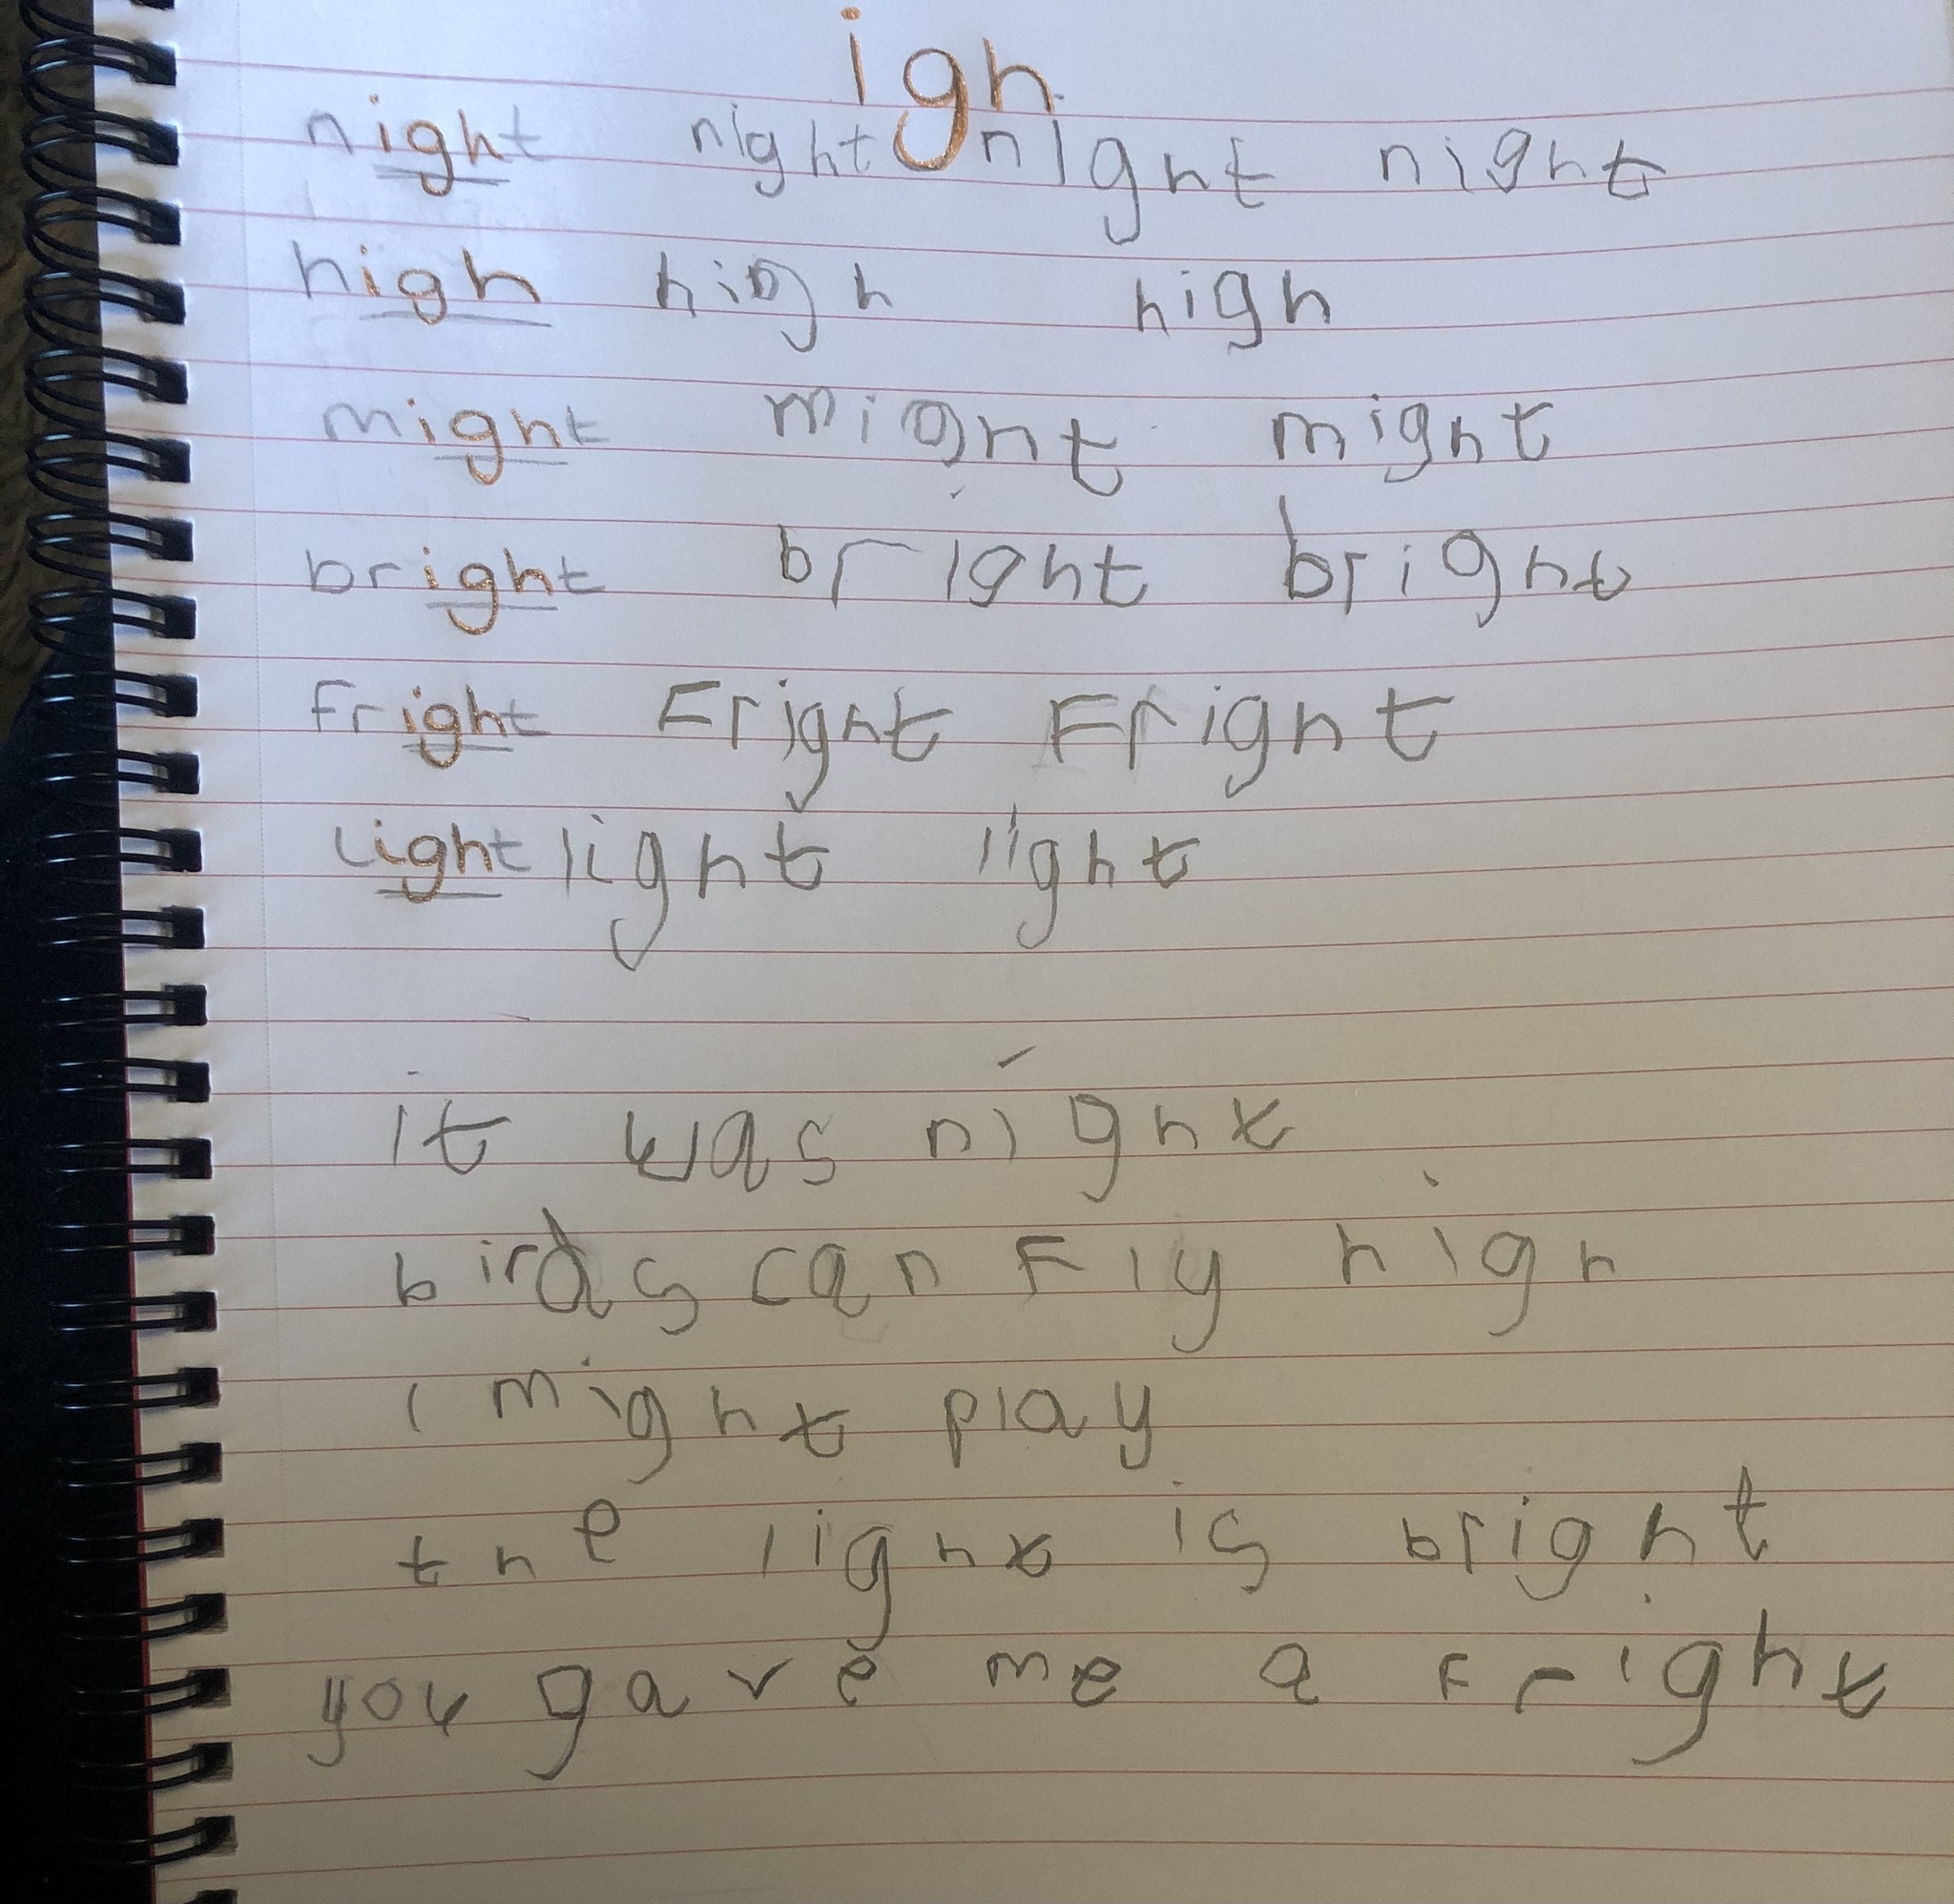 igh
night night night night
high high high
might might might
bright bright bright
fright Fright Fright
light light light
it was night
birds can Fly high
I might play
the light is bright
you gave me a Fright